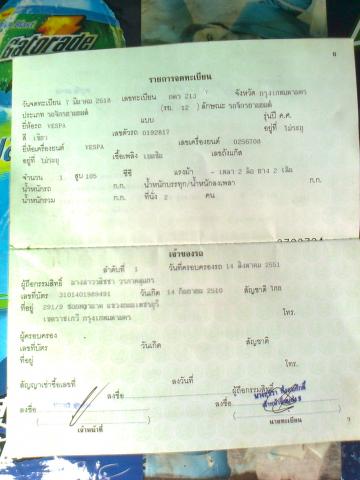 Gatorade
8
รายการจดทะเบียน
วันจดทะเบียน 7 มีนาคม 2518 เลขทะเบียน กตว 213 จังหวัด กรุงเทพมหานคร
ประเภท รถจักรยานยนต์ (รย. 12) ลักษณะ รถจักรยานยนต์
ยี่ห้อรถ VESPA แบบ รุ่นปี ค.ศ.
สี เขียว เลขตัวรถ 0192817 อยู่ที่ ไม่ระบุ
ยี่ห้อเครื่องยนต์ VESPA เลขเครื่องยนต์ 0256708
อยู่ที่ ไม่ระบุ เชื้อเพลิง เบนซิน เลขถังแก๊ส
จำนวน 1 สูบ 105 ซีซี แรงม้า - เพลา 2 ล้อ ยาง 2 เส้น
น้ำหนักรถ ก.ก. น้ำหนักบรรทุก/น้ำหนักลงเพลา ก.ก.
น้ำหนักรวม ก.ก. ที่นั่ง 2 คน
เจ้าของรถ
ลำดับที่ 1 วันที่ครอบครองรถ 14 สิงหาคม 2551
ผู้ถือกรรมสิทธิ์ นางสาววลิชชา
เลขที่บัตร 3101401989491 วันเกิด 14 กันยายน 2510 สัญชาติ ไทย
ที่อยู่ 291/9 แขวงถนนเพชรบุรี
เขตราชเทวี กรุงเทพมหานคร โทร.
ผู้ครอบครอง
เลขที่บัตร วันเกิด สัญชาติ
ที่อยู่ โทร.
สัญญาเช่าซื้อเลขที่ ลงวันที่ ผู้ถือกรรมสิทธิ์
ลงชื่อ ลงชื่อ ลงชื่อ
เจ้าหน้าที่ นายทะเบียน
7